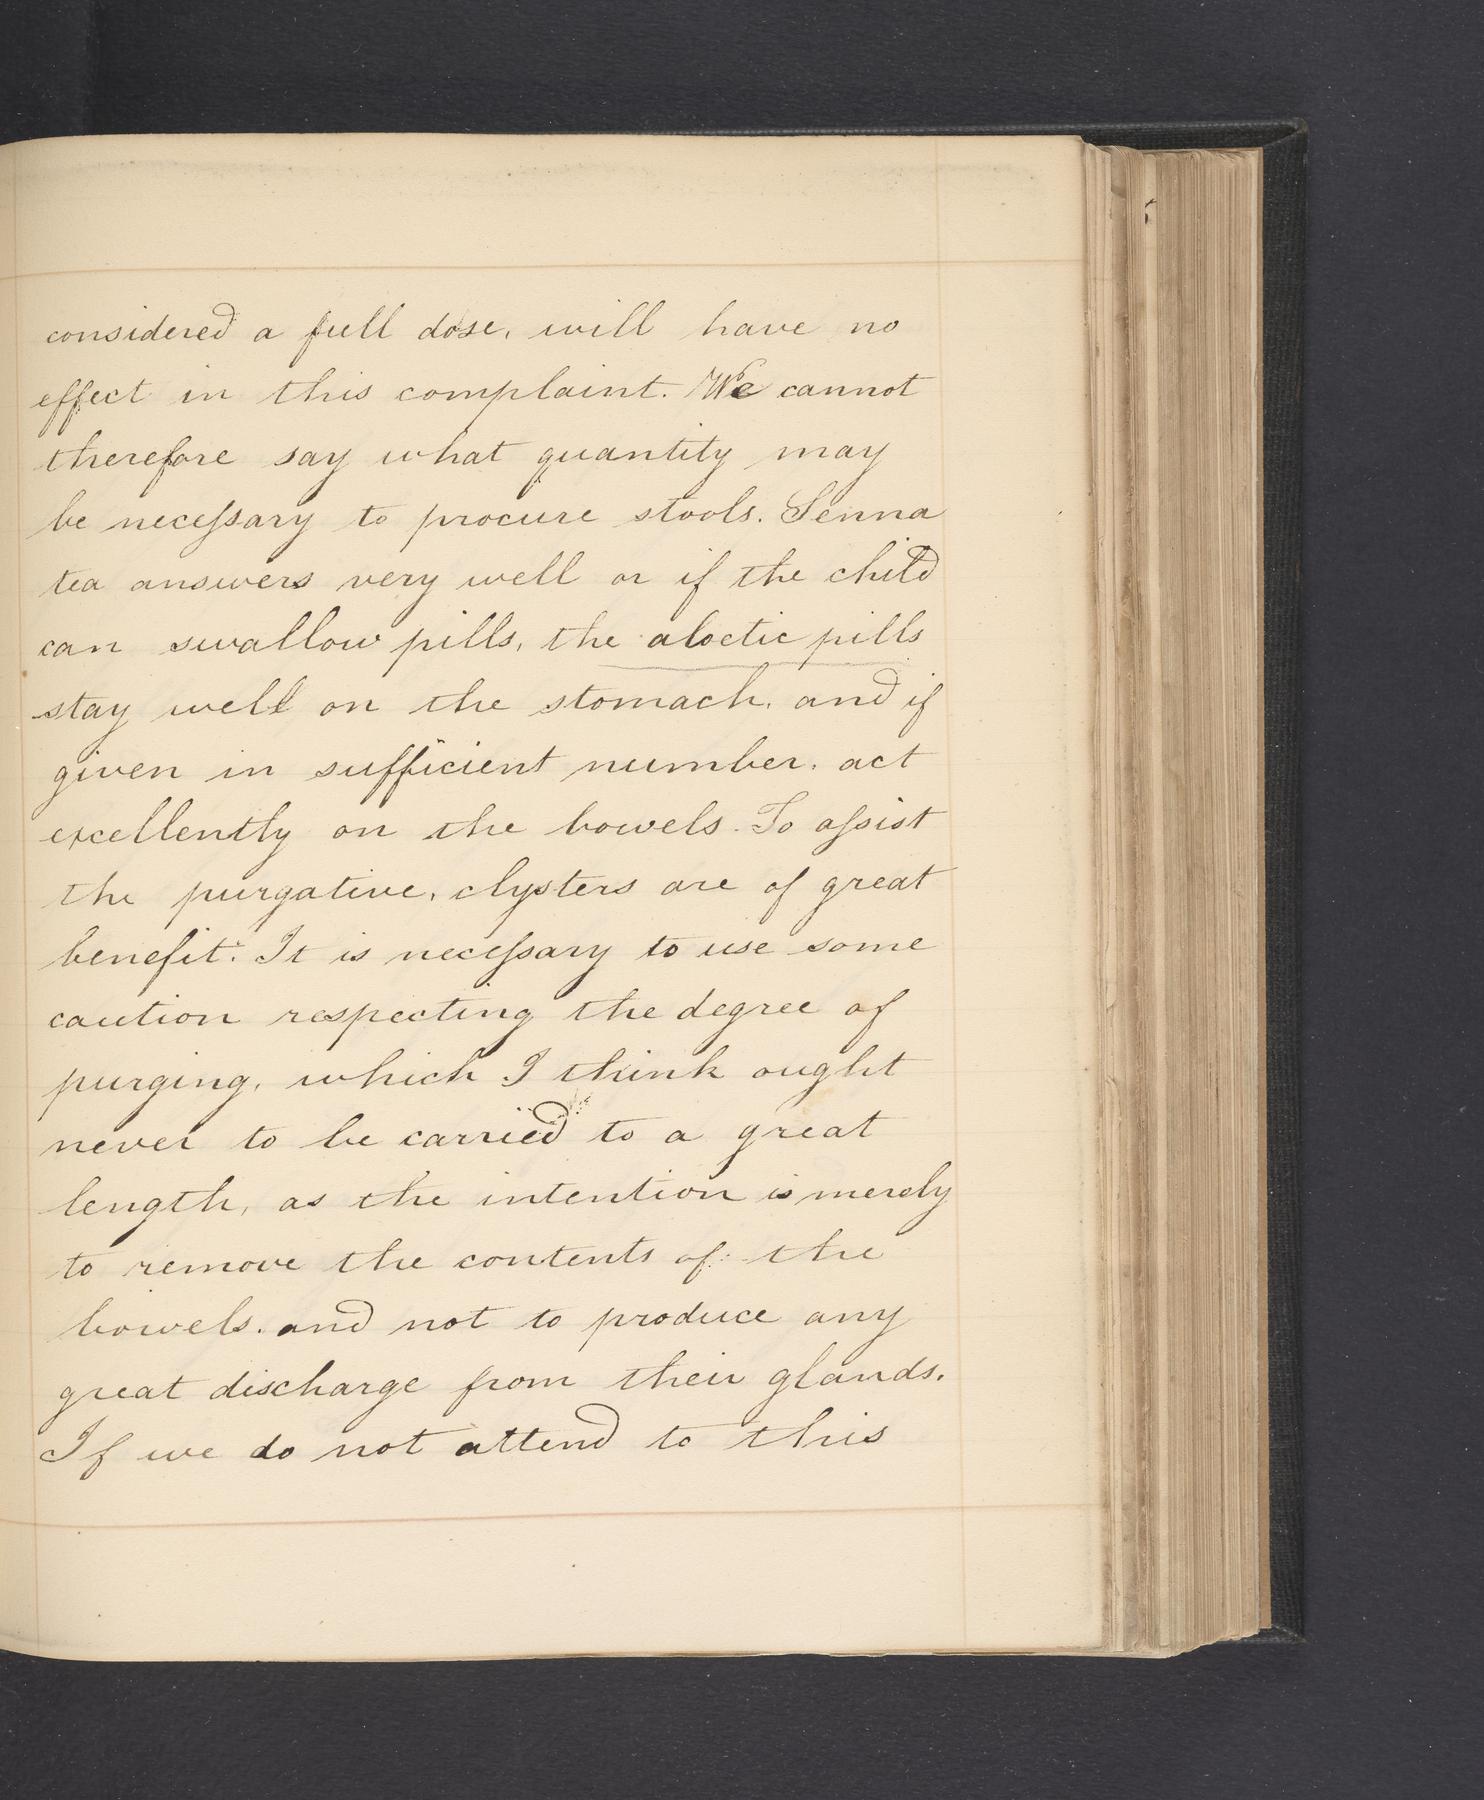 considered a full dose, will have no
effect in this complaint. We cannot
therefore say what quantity may
be neceſsary to procure stools. Senna
tea answers very well or if the child
can swallow pills, the aloetic pills
stay well on the stomach, and if
given in sufficient number, act
excellently on the bowels. To aſsist
the purgative, clysters are of great
benefit. It is neceſsary to use some
caution respecting the degree of
purging, which I think ought
never to be carried to a great
length, as the intention is merely
to remove the contents of the
bowels. and not to produce any
great discharge from their glands.
If we do not attend to this